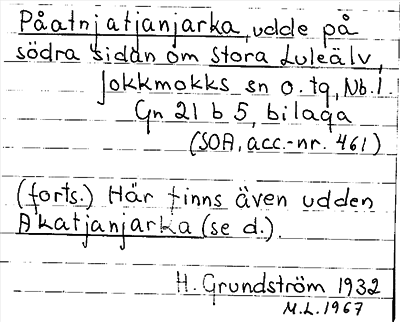 Påatnjatjanjarka, udde på
södra sidan om Stora Luleälv,
Jokkmokks sn o. tg, Nb.l.
Gn 21 b 5, bilaga
(SOA, acc.-nr. 461)
(forts.) Här finns även udden
Akatjanjarka (se d.).
H. Grundström 1932
M.L. 1967